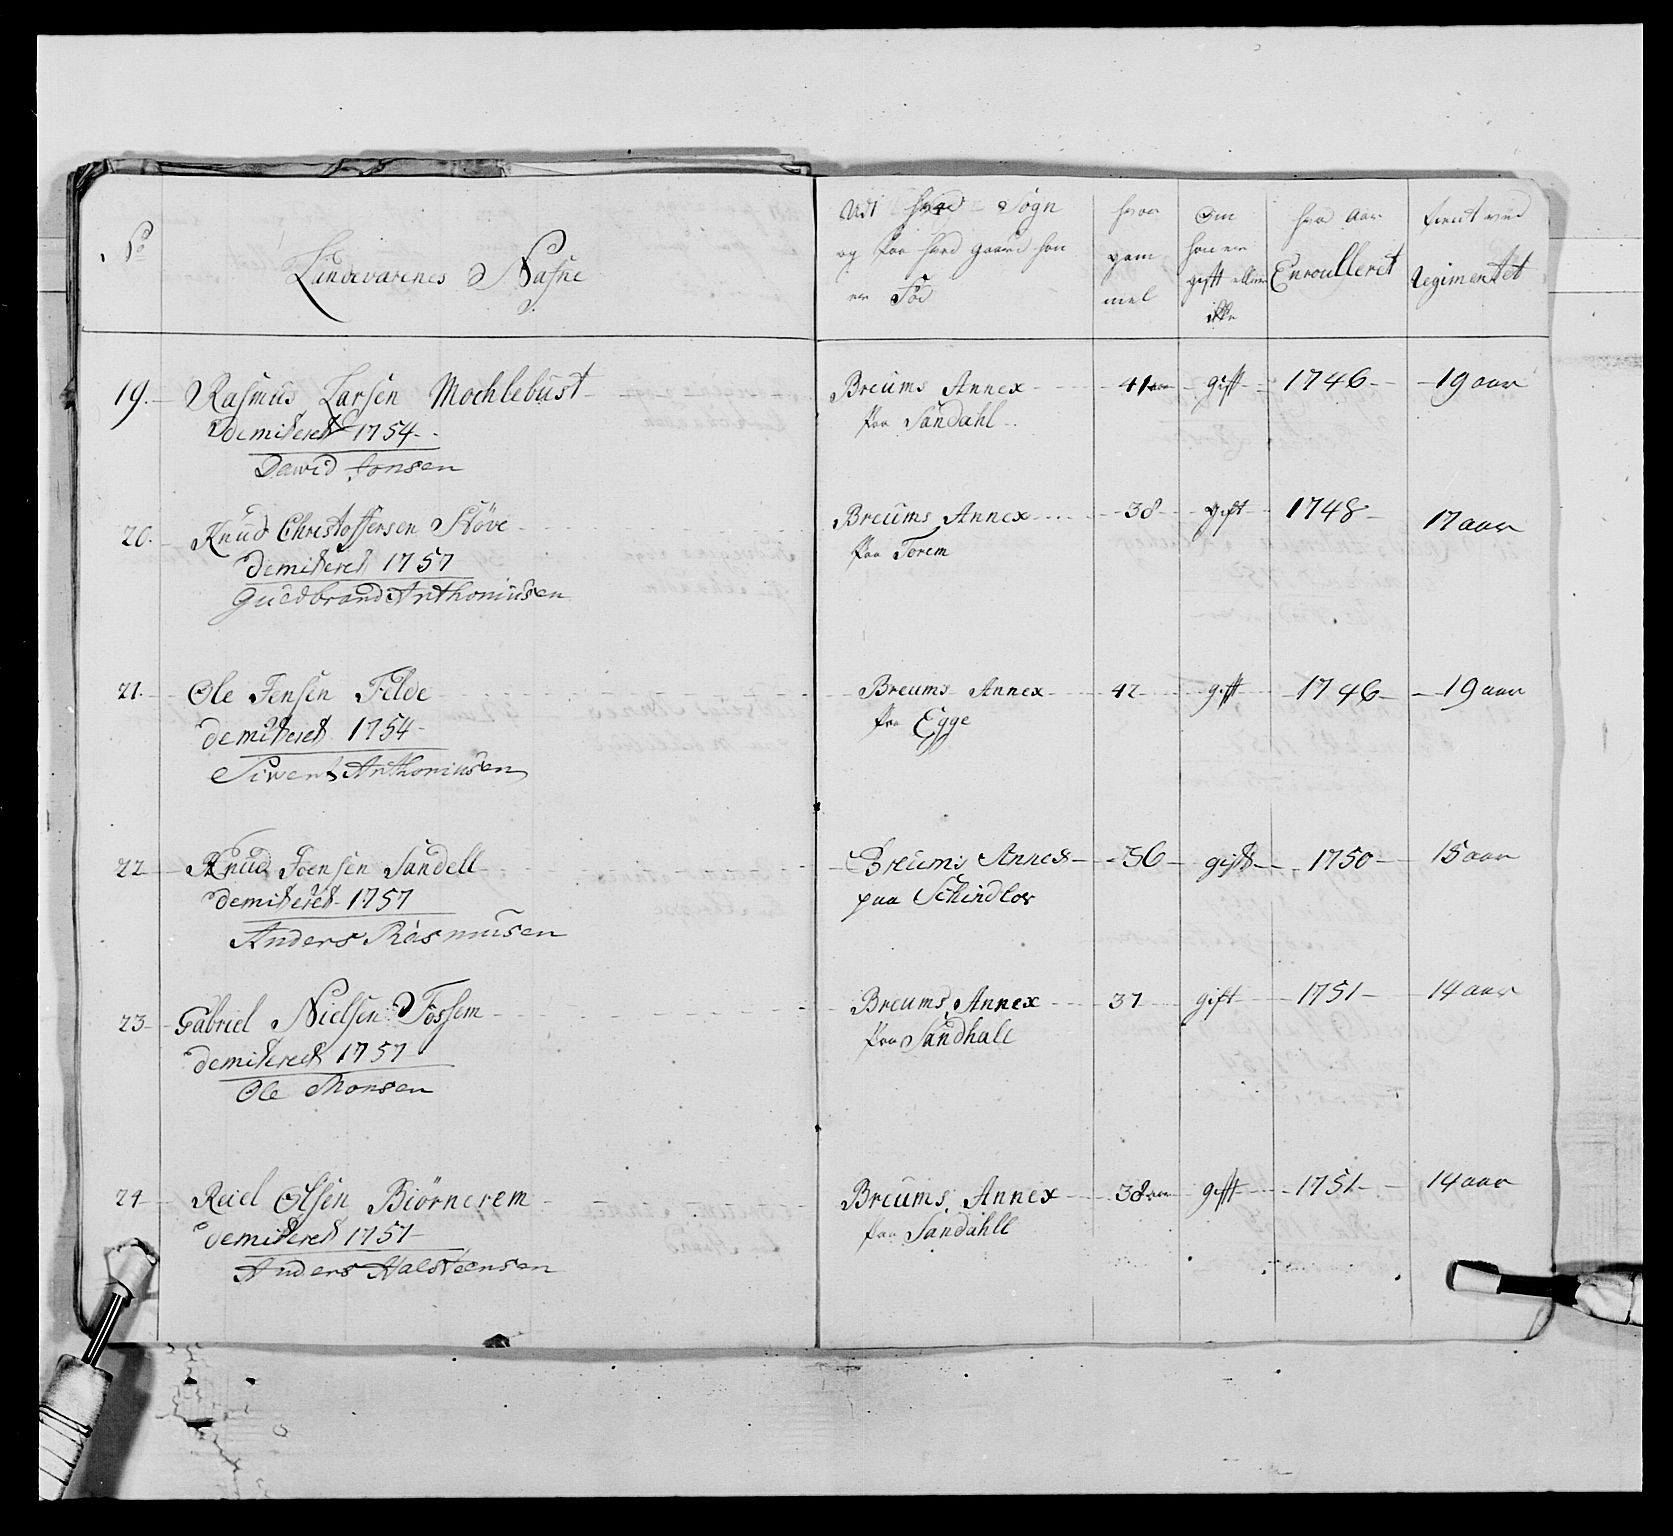 No
Landeværnes Nafne
Udi hvad Sogn
og paa hvad gaard han
er Fød
hvor
gam
mel
Om
han er
gift eller
ikke
hvad Aar
Enroulleret
tient ved
Regimentet
19. Rasmus Larsen Mochlebust Breums Annex 41 aar gift 1746 19 aar
demiteret 1754 paa Sandahl
Dawid Jonsen
20. Knud Christoffersen Støve Breums Annex 38 gift 1748 17 aar
demiteret 1757 paa Torem
Guldbrand Anthoniusen
21. Ole Jensen Felde Breums Annex 42 gift 1746 19 aar
demiteret 1754 paa Egge
Siwert Anthoniusen
22 Knud Joensen Sandell Breums Annex 36 gift 1750 15 aar
demiteret 1757 paa Schindlor
Anders Rasmusen
23 Gabriel Nielsen Fossem Breums Annex 37 gift 1751 14 aar
demiteret 1757 paa Sandhall
Ole Monsen
24 Reiel Olsen Biørnerem Breums Annex 38 aar gift 1751 14 aar
demiteret 1757 paa Sandahll
Anders Halsteensen